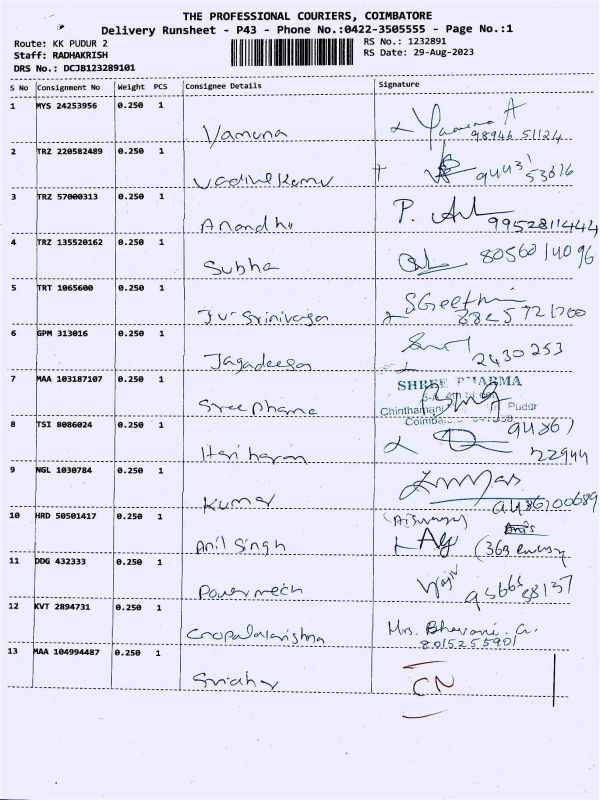 THE PROFESSIONAL COURIERS, COIMBATORE
Delivery Runsheet - P43 - Phone No.:0422-3505555 - Page No.:1
Route: KK PUDUR 2
RS No.: 1232891
Staff: RADHAKRISH
RS Date: 29-Aug-2023
DRS No.: DCJB123289101
S No Consignment No Weight PCS Consignee Details Signature
1 MYS 24253956 0.250 1
Vamuna
98946 51124
2 TRZ 220582489 0.250 1
94431 53616
3 TRZ 57000313 0.250 1
Anandhi
P.
9952811444
4 TRZ 135520162 0.250 1
Subha
8056014096
5 TRT 1065600 0.250 1
Srinivasan
SGeetha
6 GPM 313016 0.250 1
Jagadeesan
2430253
7 MAA 103187107 0.250 1
SHREE PHARMA
Chinthamani Pudur
Sree Pharma
8 TSI 8086024 0.250 1
94867
Hariharan
22944
9 NGL 1030784 0.250 1
Kumar
9486700689
10 HRD 50501417 0.250 1
Anil Singh
11 DDG 432333 0.250 1
Powermech
95665 88137
12 KVT 2894731 0.250 1
Gopalakrishna
Mrs. Bhavani. G.
8015255901
13 MAA 104994487 0.250 1
Sridhar
CN